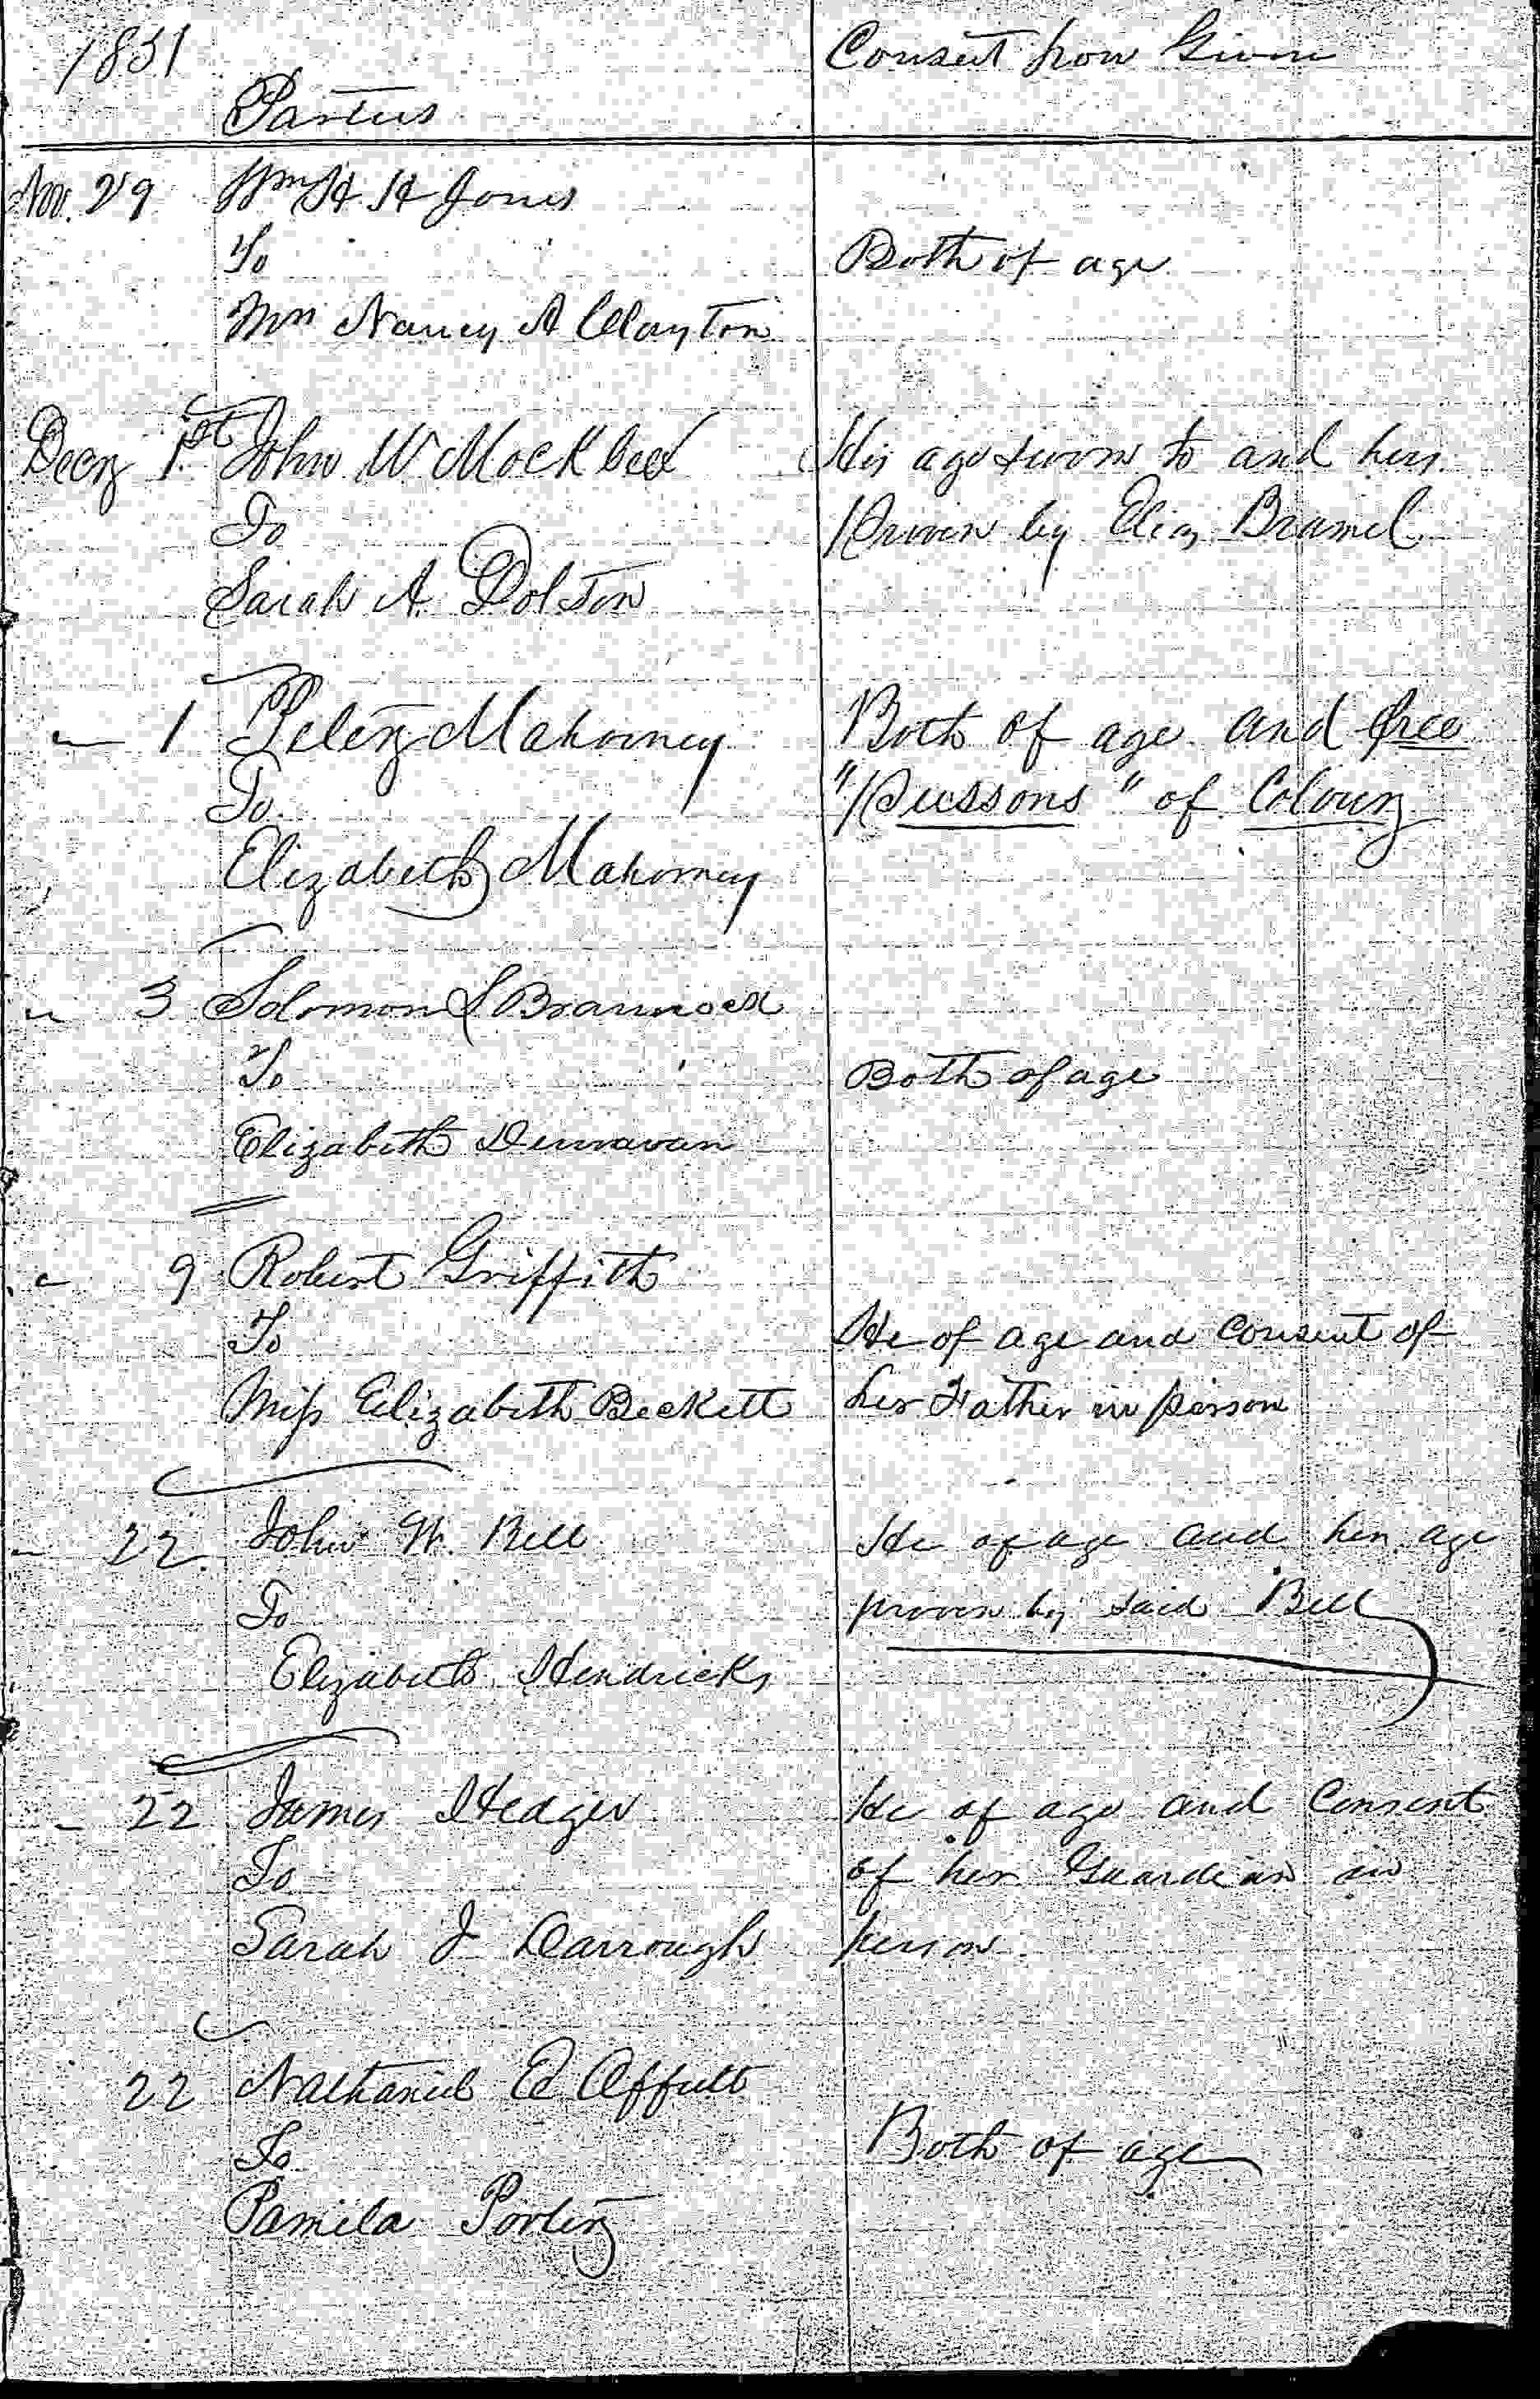 1851
Consent how Given
Parties
Nov. 29 Wm H H Jones
To
Both of age
Mrs Nancy A Clayton
Decr 1st John W Mockbee
His age sworn to and hers
proven by Eliz Bramel
To
Sarah A. Dolton
" 1 Peter Mahorney
Both of age and free
To
"Pussons" of Colour
Elizabeth Mahorney
" 3 Solomon S Brannock
To
Both of age
Elizabeth Dunnavan
" 9 Robert Griffith
To
He of age and consent of
Miss Elizabeth Beckett
her Father in person
" 22 John W. Bell
He of age and her age
To
proven by said Bell
Elizabeth Hendricks
" 22 James Hedges
He of age and Consent
To
of her Guardian in
Sarah J Darrough
person
22 Nathaniel E Offutt
To
Both of age
Pamila Porter